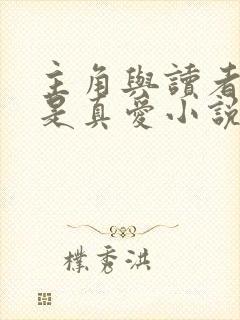 主角與讀者
是真愛小說
樸秀洪